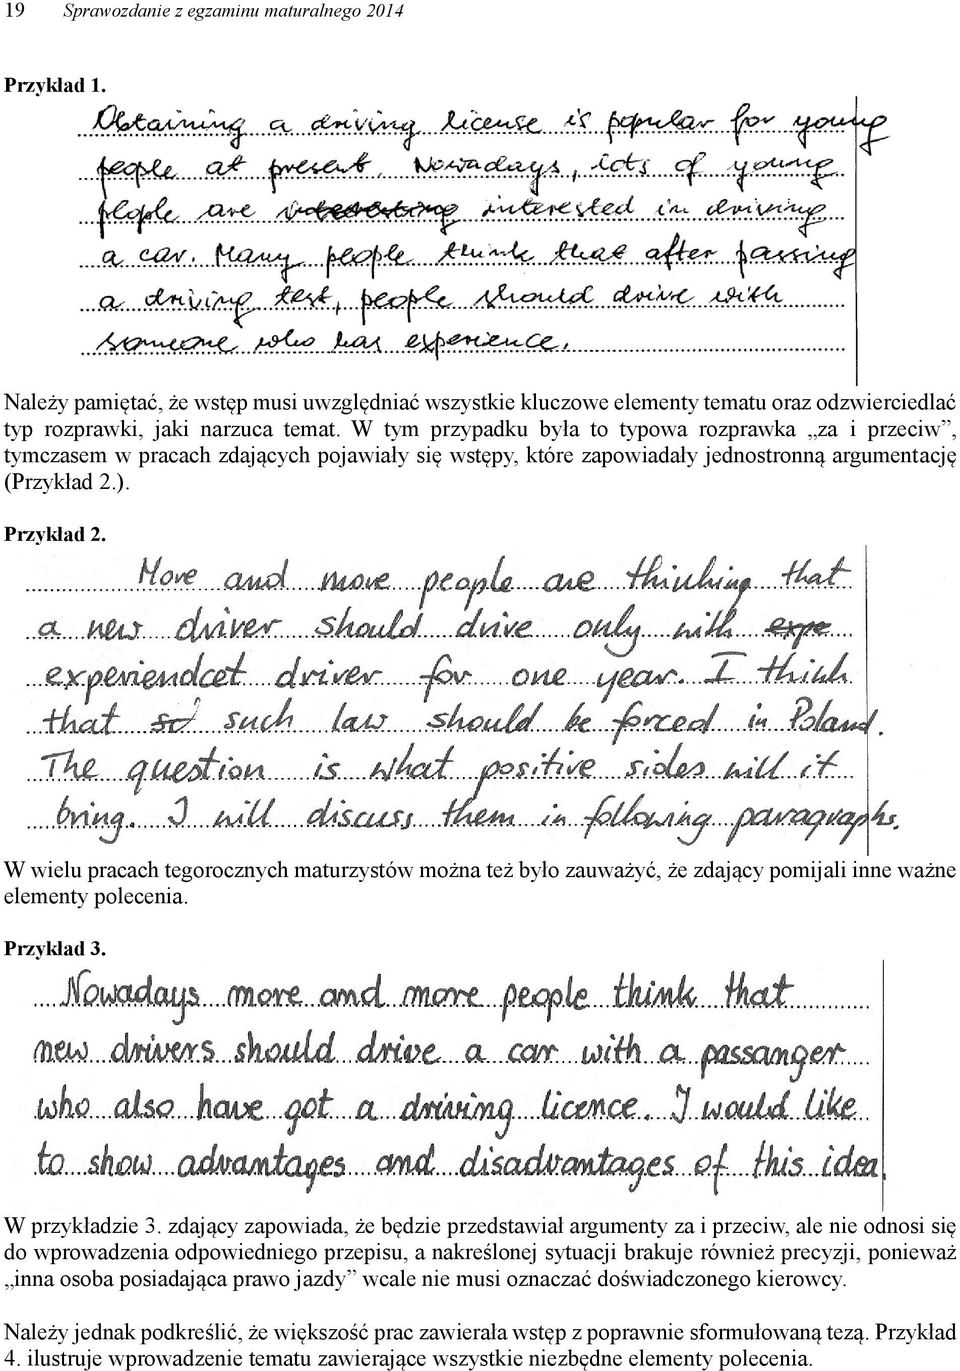 19 Sprawozdanie z egzaminu maturalnego 2014
Przykład 1.
Obtaining a driving license is popular for young
people at present. Nowadays, lots of young
people are interesting interested in driving
a car. Many people think that after passing
a driving test, people should drive with
someone who has experience.
Należy pamiętać, że wstęp musi uwzględniać wszystkie kluczowe elementy tematu oraz odzwierciedlać
typ rozprawki, jaki narzuca temat. W tym przypadku była to typowa rozprawka „za i przeciw”,
tymczasem w pracach zdających pojawiały się wstępy, które zapowiadały jednostronną argumentację
(Przykład 2.).
Przykład 2.
More and more people are thinking that
a new driver should drive only with expe
experiendcet driver for one year. I think
that so such law should be forced in Poland.
The question is what positive sides will it
bring. I will discuss them in following paragraphs.
W wielu pracach tegorocznych maturzystów można też było zauważyć, że zdający pomijali inne ważne
elementy polecenia.
Przykład 3.
Nowadays more and more people think that
new drivers should drive a car with a passanger
who also have got a driving licence. I would like
to show advantages and disadvantages of this idea.
W przykładzie 3. zdający zapowiada, że będzie przedstawiał argumenty za i przeciw, ale nie odnosi się
do wprowadzenia odpowiedniego przepisu, a nakreślonej sytuacji brakuje również precyzji, ponieważ
„inna osoba posiadająca prawo jazdy” wcale nie musi oznaczać doświadczonego kierowcy.
Należy jednak podkreślić, że większość prac zawierała wstęp z poprawnie sformułowaną tezą. Przykład
4. ilustruje wprowadzenie tematu zawierające wszystkie niezbędne elementy polecenia.